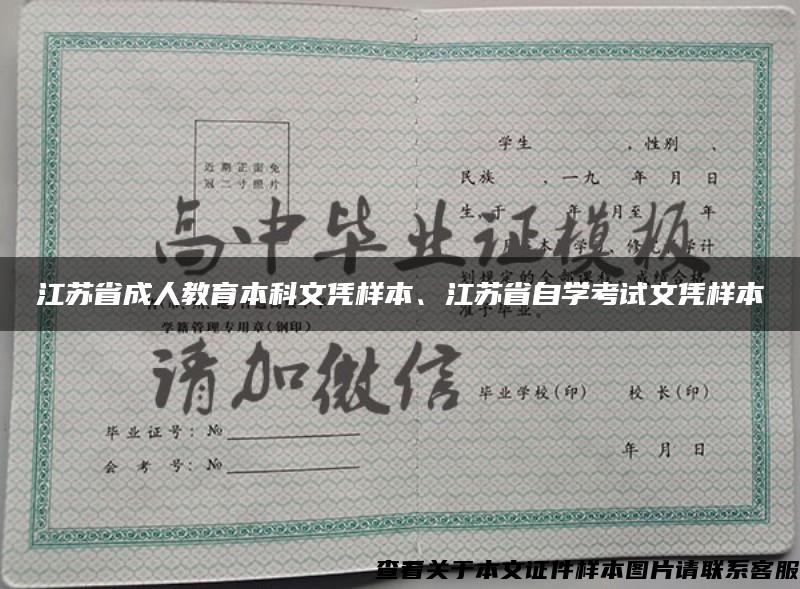 近期正面免
冠二寸照片
学生 ，性别 、
民族 ，一九 年 月 日
生 于 年 月至 年
高中毕业证模板
江苏省成人教育本科文凭样本、江苏省自学考试文凭样本
准予毕业。
学籍管理专用章(钢印)
请加微信
毕业学校(印) 校 长(印)
毕业证号：№
会 考 号：№
年 月 日
查看关于本文证件样本图片请联系客服